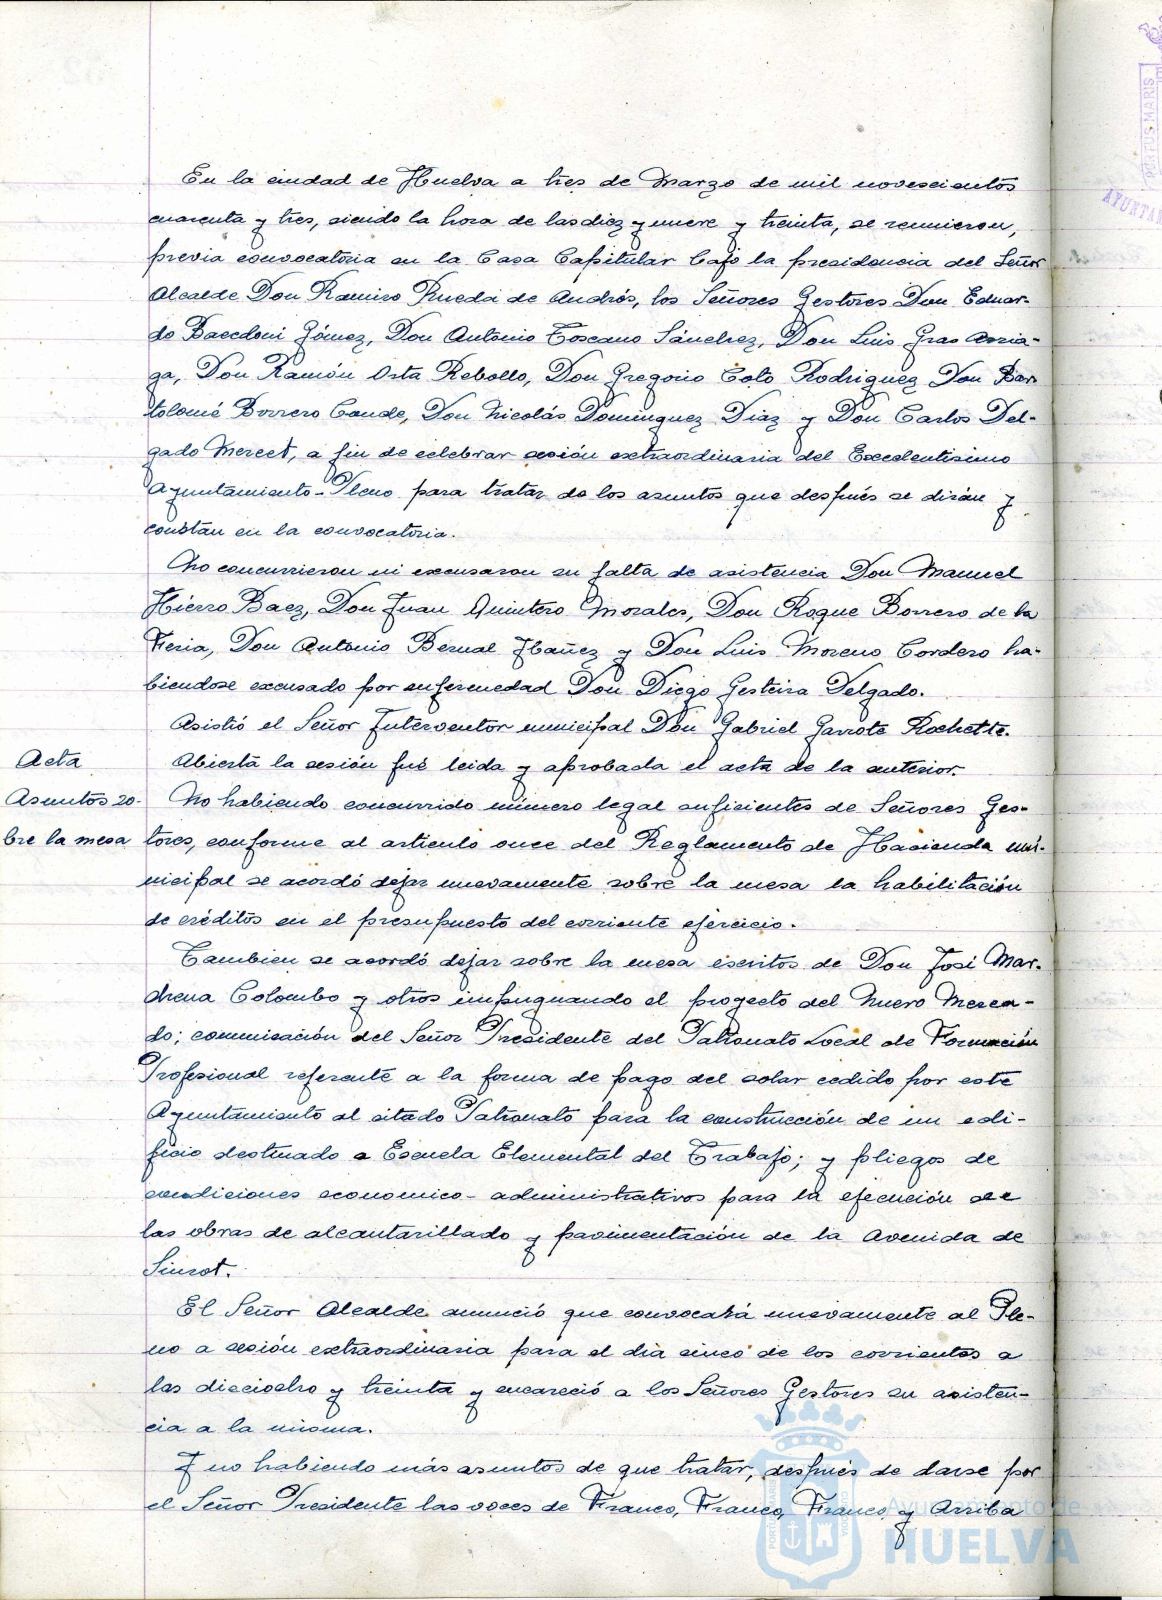 En la ciudad de Huelva a tres de Marzo de mil novescientos
cuarenta y tres, siendo la hora de las diez y nueve y treinta, se reunieron,
previa convocatoria en la Casa Capitular bajo la presidencia del Señor
Alcalde Don Ramiro Rueda de Andrés, los Señores Gestores Don Eduar-
do Bacedoni Gómez, Don Antonio Toscano Sánchez, Don Luis Gras Arria-
ga, Don Ramón Orta Rebollo, Don Gregorio Coto Rodriguez Don Bar-
tolomé Borrero Conde, Don Nicolás Dominguez Diaz y Don Carlos Del-
gado Mercet, a fin de celebrar sesión extraordinaria del Excelentisimo
Ayuntamiento-Pleno para tratar de los asuntos que después se dirán y
constan en la convocatoria.
No concurrieron ni excusaron su falta de asistencia Don Manuel
Hierro Baez, Don Juan Quintero Morales, Don Roque Borrero de la
Feria, Don Antonio Bernal Ibañez y Don Luis Moreno Cordero ha-
biendose excusado por enfermedad Don Diego Gesteira Delgado.
Asistió el Señor Interventor municipal Don Gabriel Garrote Rochette.
Acta
Abierta la sesión fué leida y aprobada el acta de la anterior.
Asuntos so-
bre la mesa
No habiendo concurrido número legal suficientes de Señores Ges-
tores, conforme al articulo once del Reglamento de Hacienda mu-
nicipal se acordó dejar nuevamente sobre la mesa la habilitación
de créditos en el presupuesto del corriente ejercicio.
Tambien se acordó dejar sobre la mesa escritos de Don José Mar-
chena Colombo y otros impugnando el proyecto del Nuevo Merca-
do; comunicación del Señor Presidente del Patronato Local de Formación
Profesional referente a la forma de pago del solar cedido por este
Ayuntamiento al citado Patronato para la construcción de un edi-
ficio destinado a Escuela Elemental del Trabajo; y pliegos de
condiciones economico-administrativos para la ejecución de
las obras de alcantarillado y pavimentación de la Avenida de
Siurot.
El Señor Alcalde anunció que convocará nuevamente al Ple-
no a sesión extraordinaria para el dia cinco de los corrientes a
las dieciocho y treinta y encareció a los Señores Gestores su asisten-
cia a la misma.
Y no habiendo más asuntos de que tratar, después de darse por
el Señor Presidente las voces de Franco, Franco, Franco y Arriba
Ayuntamiento de
HUELVA